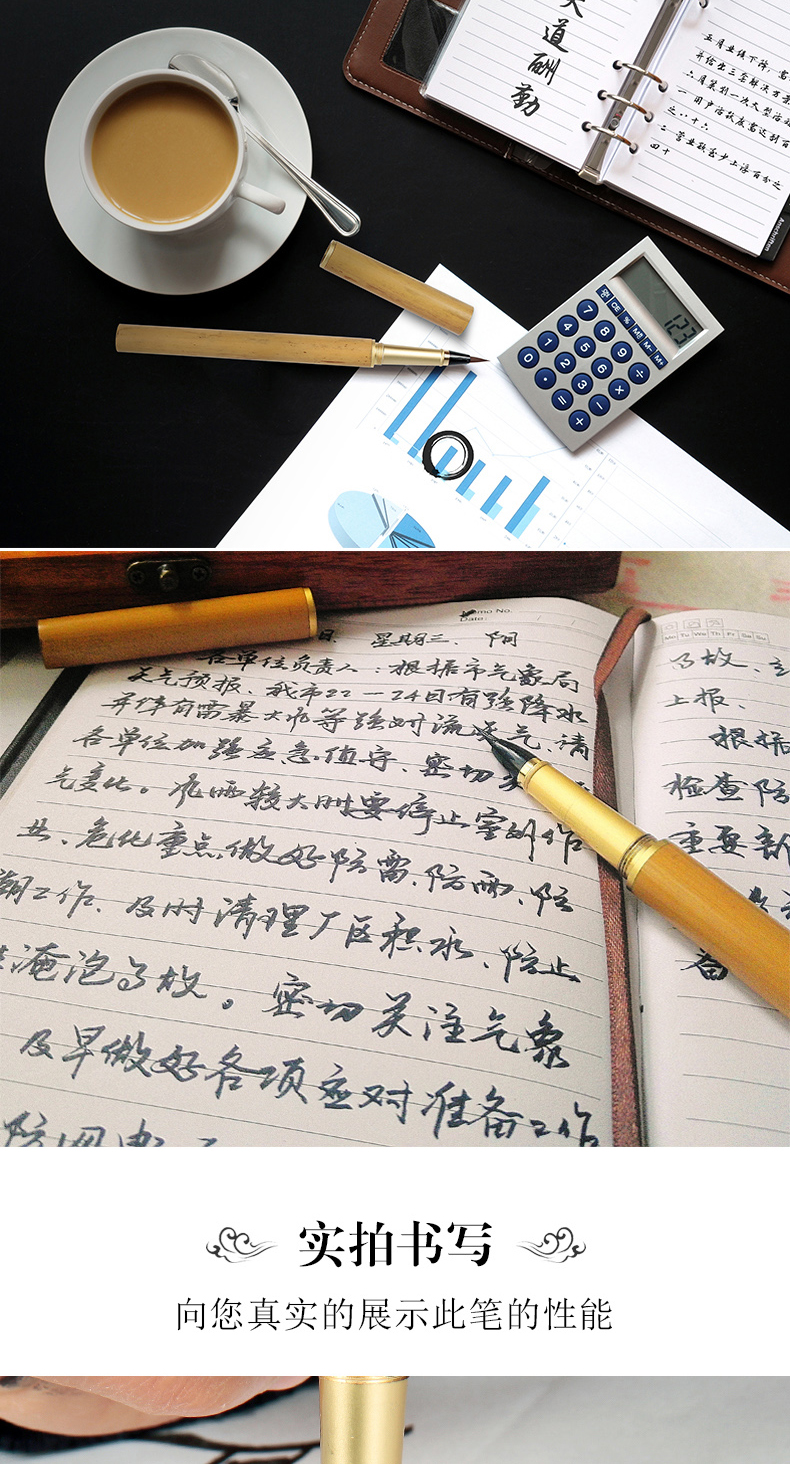 天道酬勤
五月业绩下降，需
并给出三套解决方案
六月策划一次大型活动
一 用户活跃度需达到百
之八十六
二 营业额至少上浮百分之
四十
Anschriften
123
7 8 9 ÷
4 5 6 ×
1 2 3 −
0 • = +
CE % MR M− M+
Memo No.
Date:
日 星期三、阴
各单位负责人：根据市气象局
天气预报、我市22—24日有强降水
并伴有雷暴大风等强对流天气，请
各单位加强应急值守、密切
气变化。风雨较大时要停止室外作
业、危化重点做好防雷、防雨、防
潮工作、及时清理厂区积水、防止
淹泡事故。密切关注气象
及早做好各项应对准备工作
Mo Tu We Th Fr Sa Su
事故、
上报、
根据
检查防
重要部
备
实拍书写
向您真实的展示此笔的性能